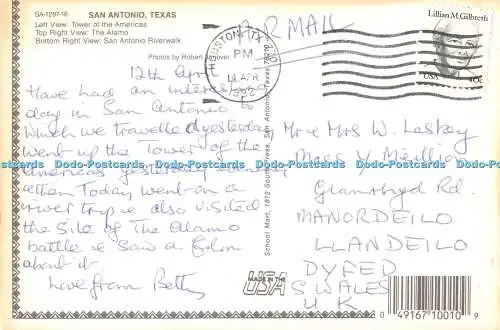 SA-1297-16 SAN ANTONIO, TEXAS
Left View: Tower of the Americas
Top Right View: The Alamo
Bottom Right View: San Antonio Riverwalk
Photos by Robert
AIR MAIL
HOUSTON, TX
PM
14 APR
Lillian M. Gilbreth
USA 40c
12th April
Have had an interesting
day in San Antonio
which we travelled yesterday
went up the Tower of the
Americas yesterday evening
& then Today went on a
river trip & also visited
the site of The Alamo
battle & saw a film
about it
Love from Betty
School Mart, 1812 South Press, San Antonio, Texas
MADE IN THE
USA
Mr & Mrs W. Laskey
Maes Y
Glanrhyd Rd.
MANORDEILO
LLANDEILO
DYFED
S WALES
U K
0 49167 10010 9
Dodo-Postcards Dodo-Postcards Dodo-Postcards Dodo-Postcards Dodo-Postcards Dodo-Postcards